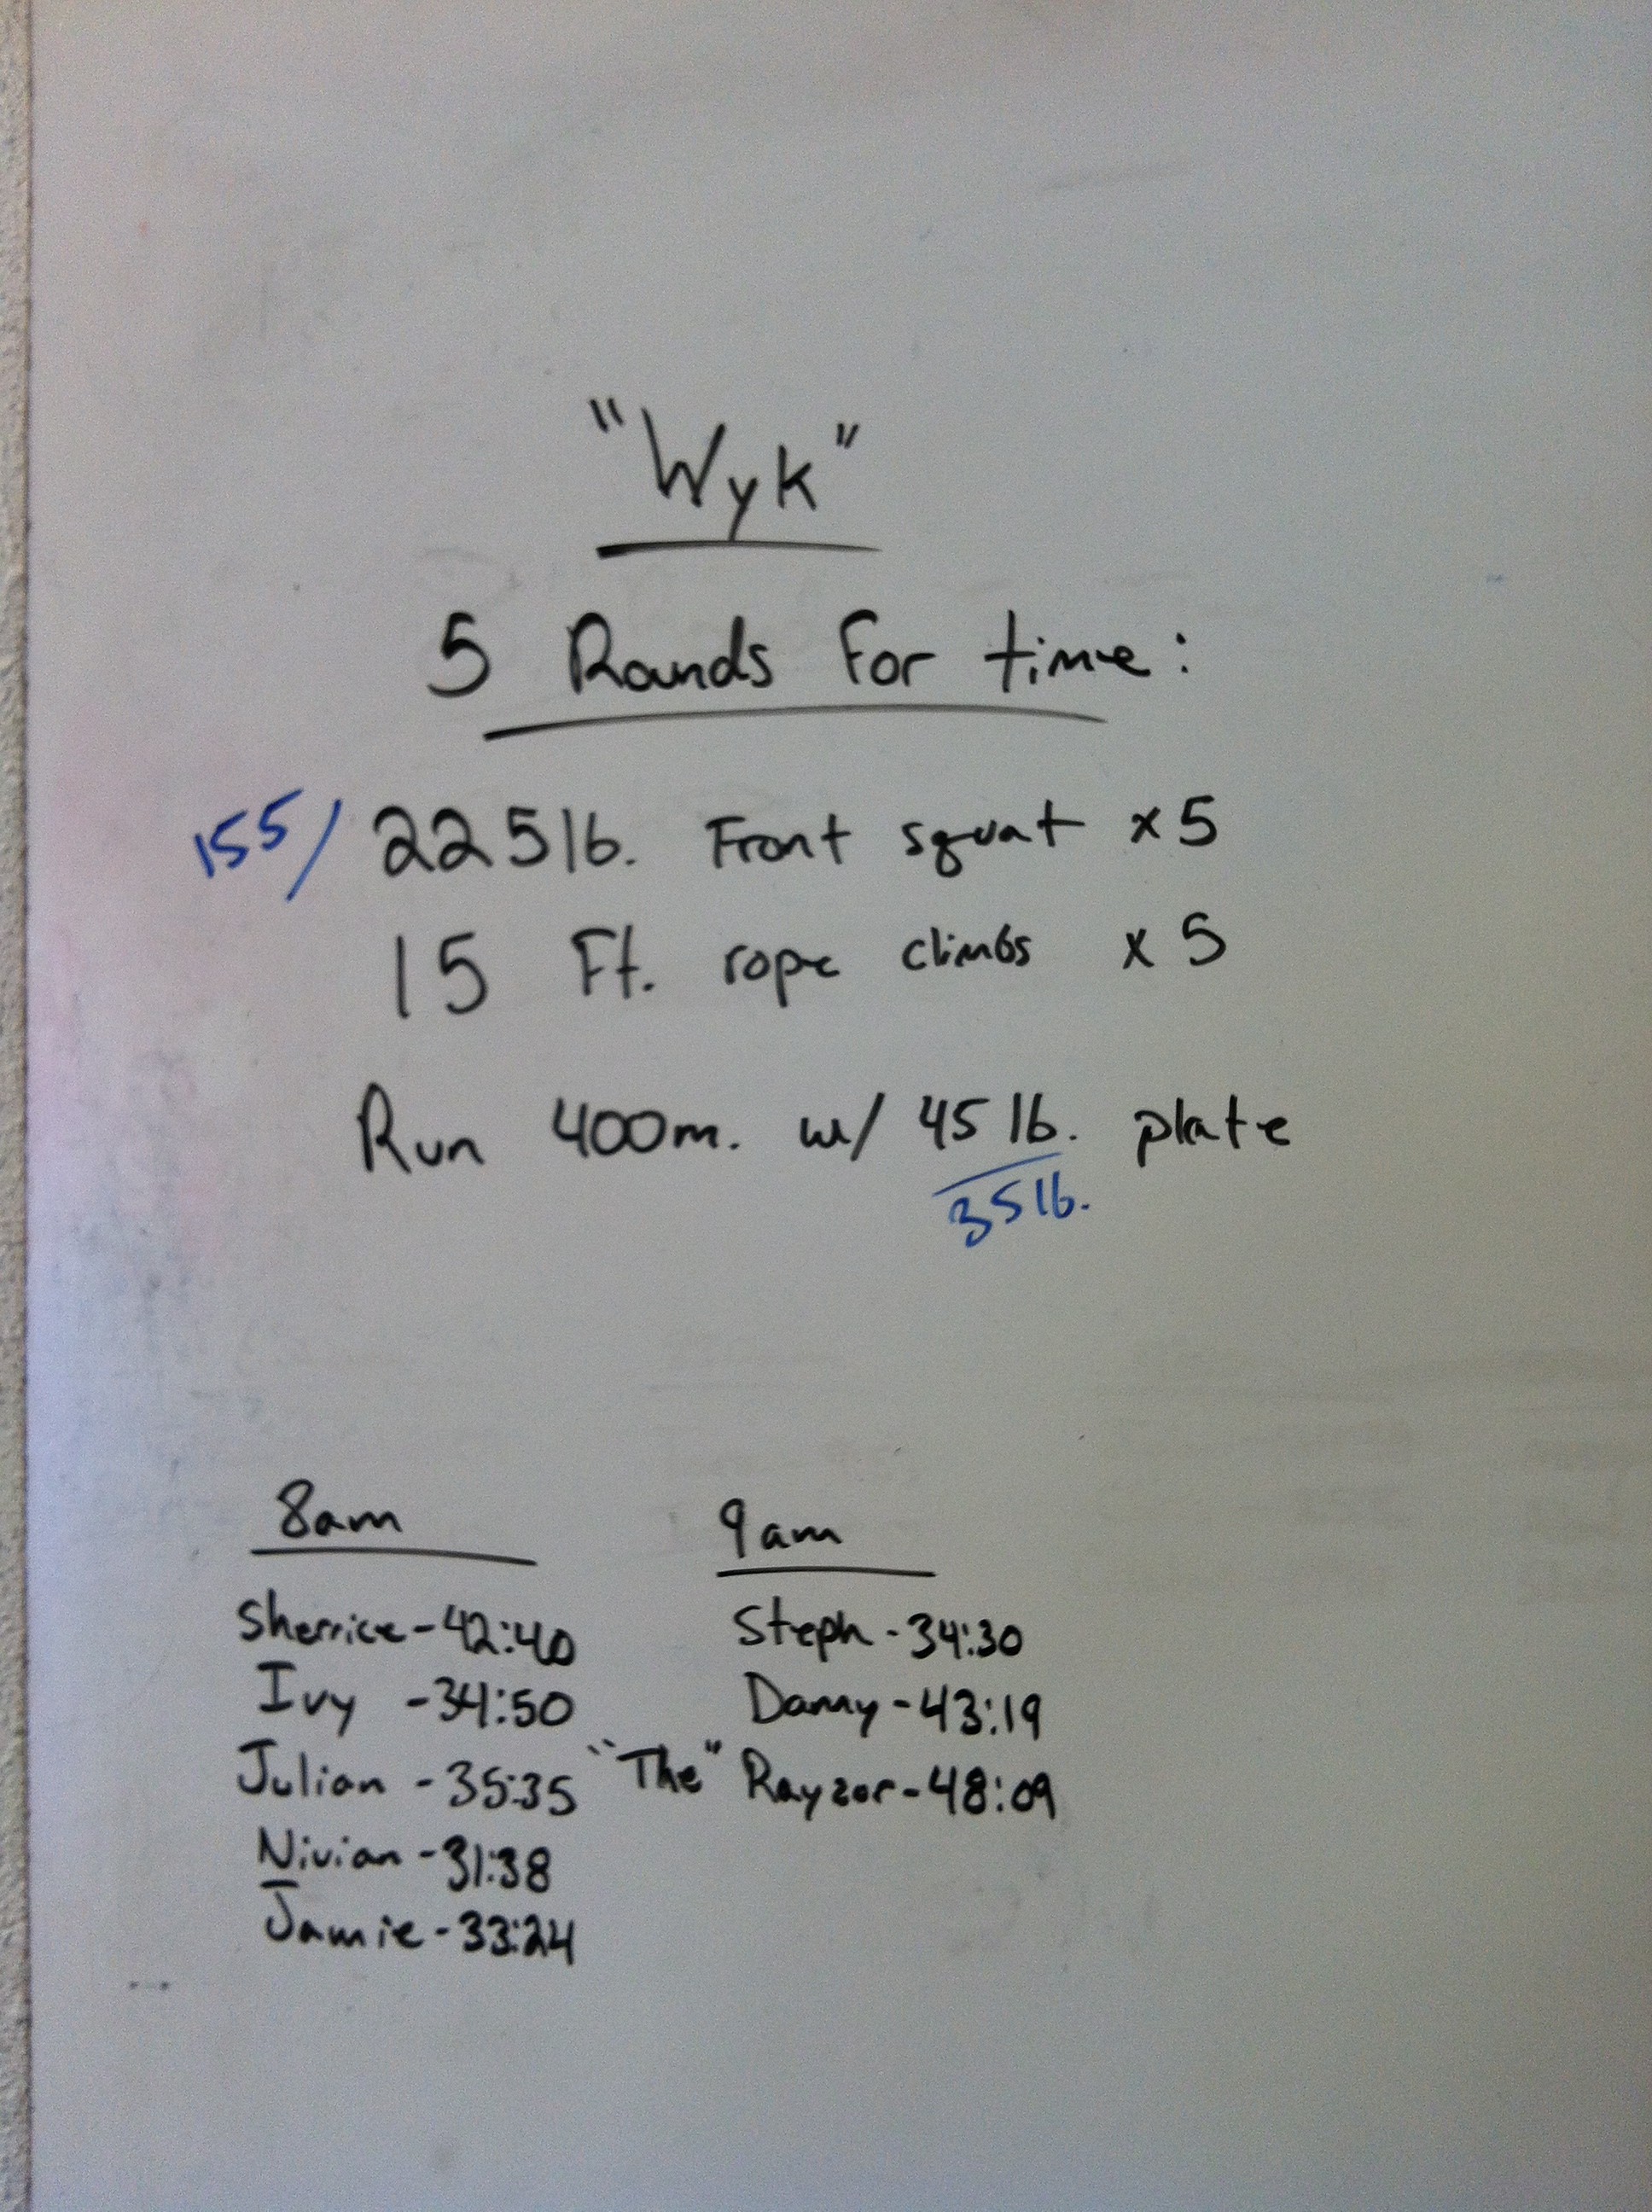 "Wyk"
5 Rounds For time:
155/ 225 lb. Front squat x5
15 Ft. rope climbs x5
Run 400m. w/ 45 lb. plate
35 lb.
8am
Sherrice - 42:40
Ivy - 34:50
Julian - 35:35
Nivian - 31:38
Jamie - 33:24
9am
Steph - 34:30
Danny - 43:19
"The" Rayzor - 48:09